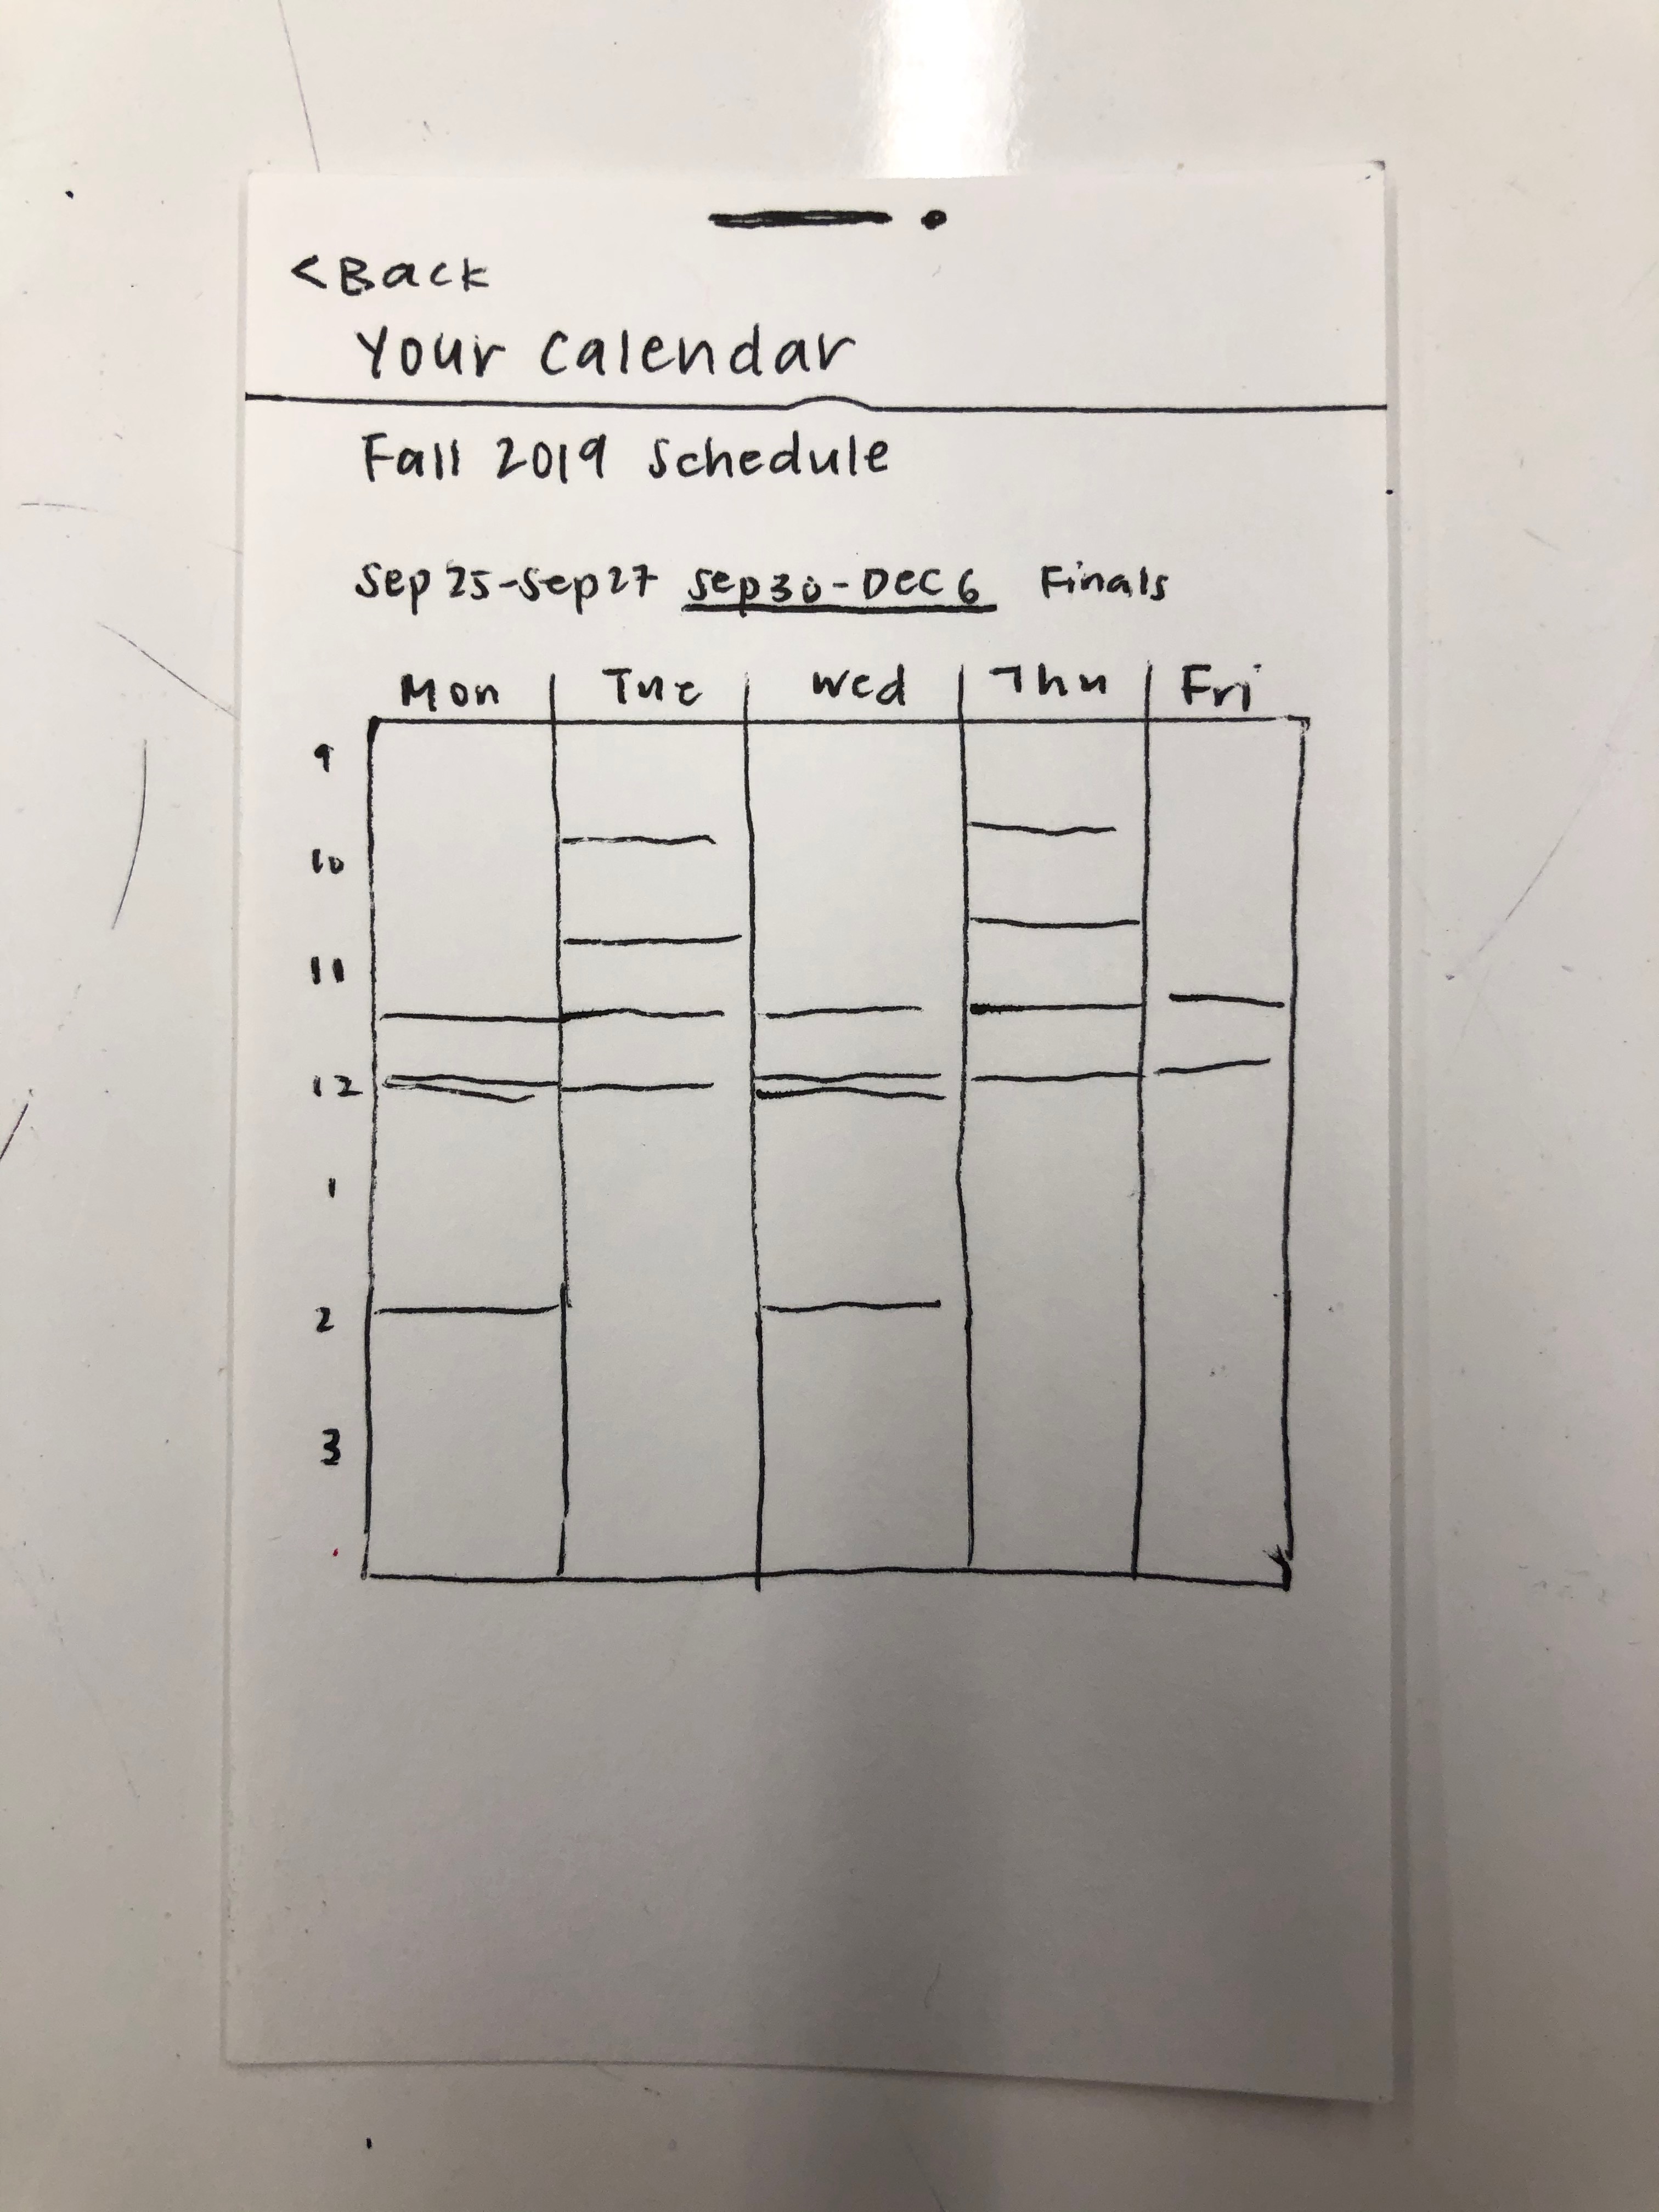 < Back
Your Calendar
Fall 2019 Schedule
Sep 25-Sep 27 Sep 30-Dec 6 Finals
Mon Tue Wed Thu Fri
9
10
11
12
1
2
3